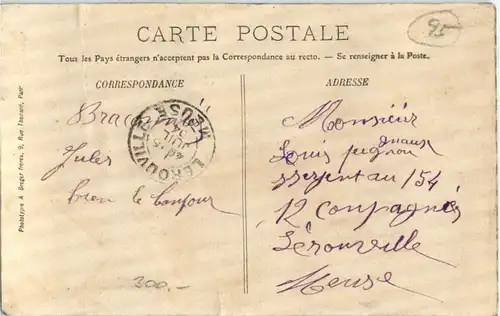 CARTE POSTALE
95
Tous les Pays étrangers n'acceptent pas la Correspondance au recto. — Se renseigner à la Poste.
CORRESPONDANCE
ADRESSE
Jules
bien le bonjour
LEROUVILLE
MEUSE
Monsieur
Louis
sergent au 154
12 Compagnie
Lérouville
Meuse
300.-
Phototype A Breger frères, 9, Rue Thénard, Paris